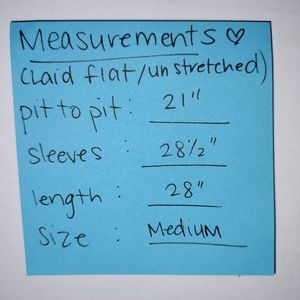 Measurements ♡
(Laid flat/unstretched)
pit to pit: 21"
Sleeves : 28½"
length : 28"
Size : Medium